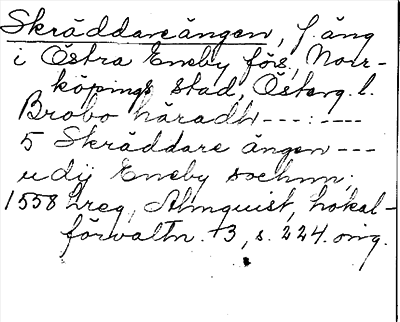 Skräddareängen, f. äng
i Östra Eneby förs, Norr-
köpings stad, Österg. l.
Brobo häradh---:----
5 Skräddare ängen ---
udij Eneby sochnn.
1558 Lreg, Almquist, Lokal-
förvaltn. 3, s. 224. orig.